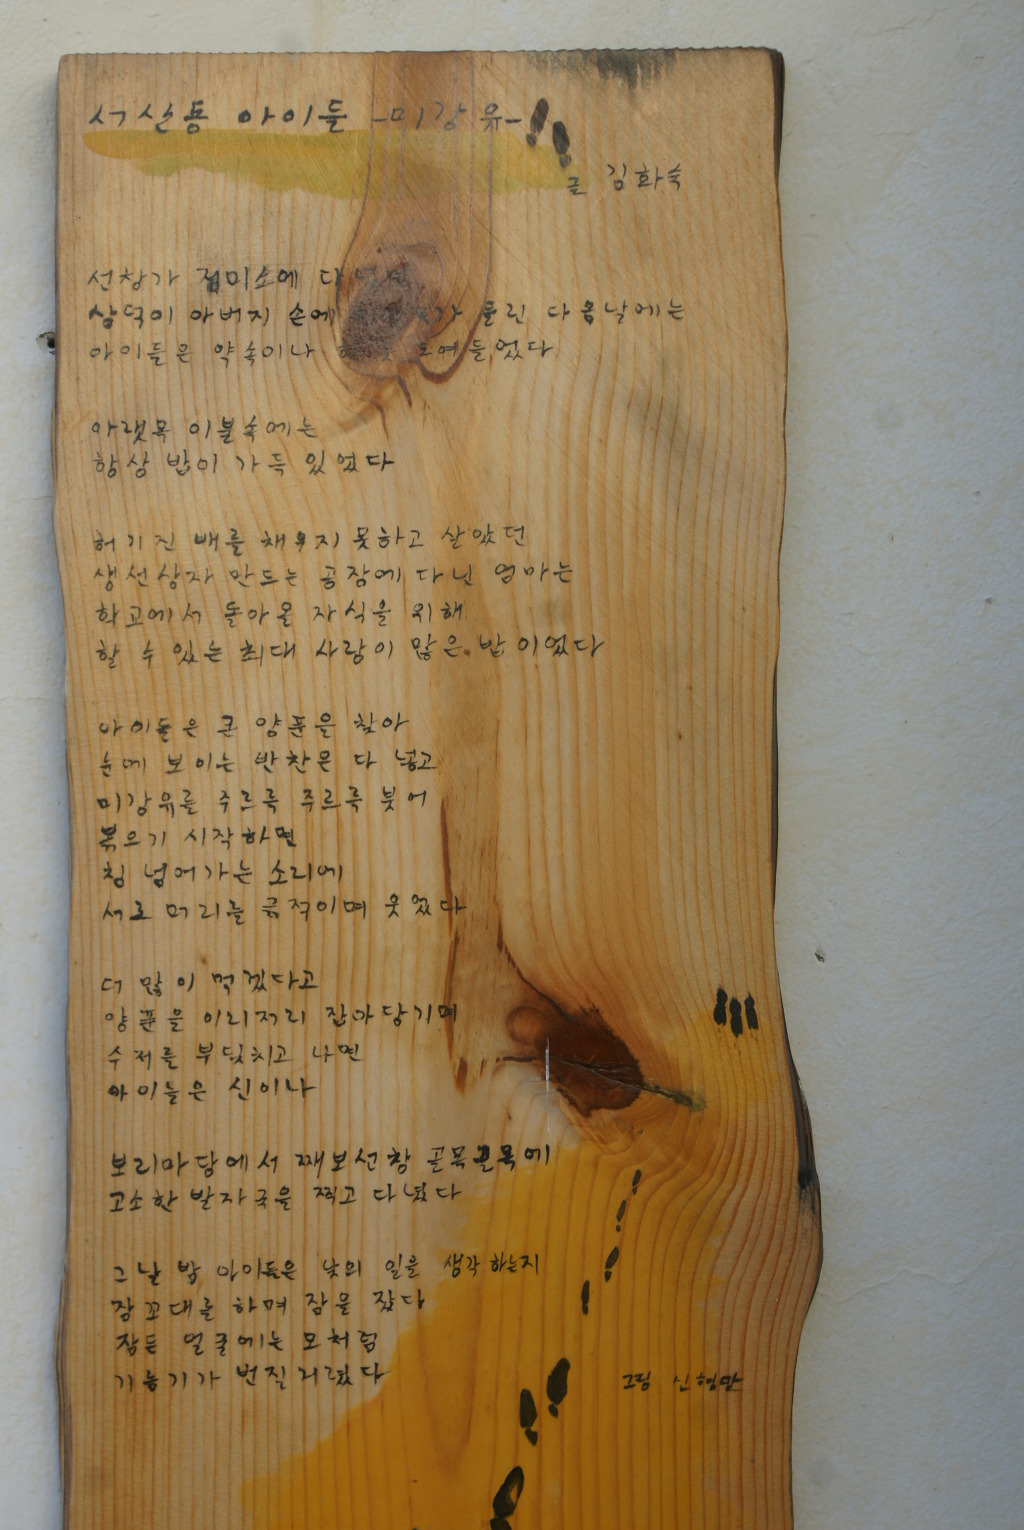 서산동 아이들 -미강유-
글 김화숙
선창가 정미소에 다니던
상덕이 아버지 손에 들린 다음날에는
아이들은 약속이나 모여들었다
아랫목 이불속에는
항상 밥이 가득 있었다
허기진 배를 채우지 못하고 살았던
생선상자 만드는 공장에 다닌 엄마는
학교에서 돌아올 자식을 위해
할 수 있는 최대 사랑이 많은 밥이었다
아이들은 큰 양푼을 찾아
눈에 보이는 반찬은 다 넣고
미강유를 주르륵 주르륵 붓어
볶으기 시작하면
침 넘어가는 소리에
서로 머리를 긁적이며 웃었다
더 많이 먹겠다고
양푼을 이리저리 잡아당기며
수저를 부딪치고 나면
아이들은 신이나
보리마당에서 째보선창 골목골목에
고소한 발자국을 찍고 다녔다
그날 밤 아이들은 낮의 일을 생각하는지
잠꼬대를 하며 잠을 잤다
잠든 얼굴에는 모처럼
기름기가 번질거렸다
그림 신형만